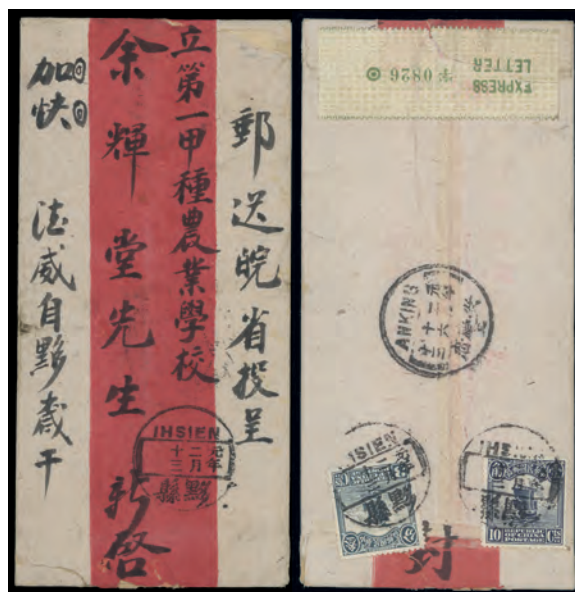 郵送皖省投呈
立第一甲種農業學校
余輝堂先生 啓
加快
法威自黟 干
IHSIEN
元年
二月
十三
黟縣
EXPRESS
LETTER
字 0826
ANKING
IHSIEN
IHSIEN
10 REPUBLIC OF CHINA POSTAGE CTS
封